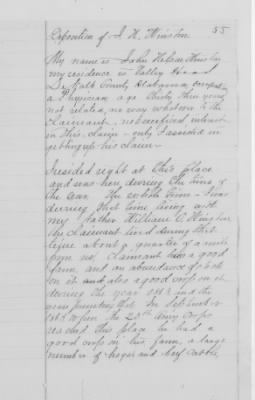 55
Exposition of J. N. Winston
My name is John Nelson Winston
my residence is Valley Head
De Kalb County Alabama, occupation
a Physician age thirty three years
not related, no way whatever to the
Claimant, no beneficial interest
in this claim - only I assisted in
getting up his claim
I resided right at this place
and was here during the time of
the war the entire time I was
during that time living with
my father William O Winston
the Claimant lived during this
time about a quarter of a mile
from me, Claimant had a good
farm, and an abundance of stock
on it and also a good crop on it
during the year 1863 and the
year previous that In September
1863 when the 20th Army Corps
reached this place he had a
good crop on his farm, a large
number of hogs and beef cattle,